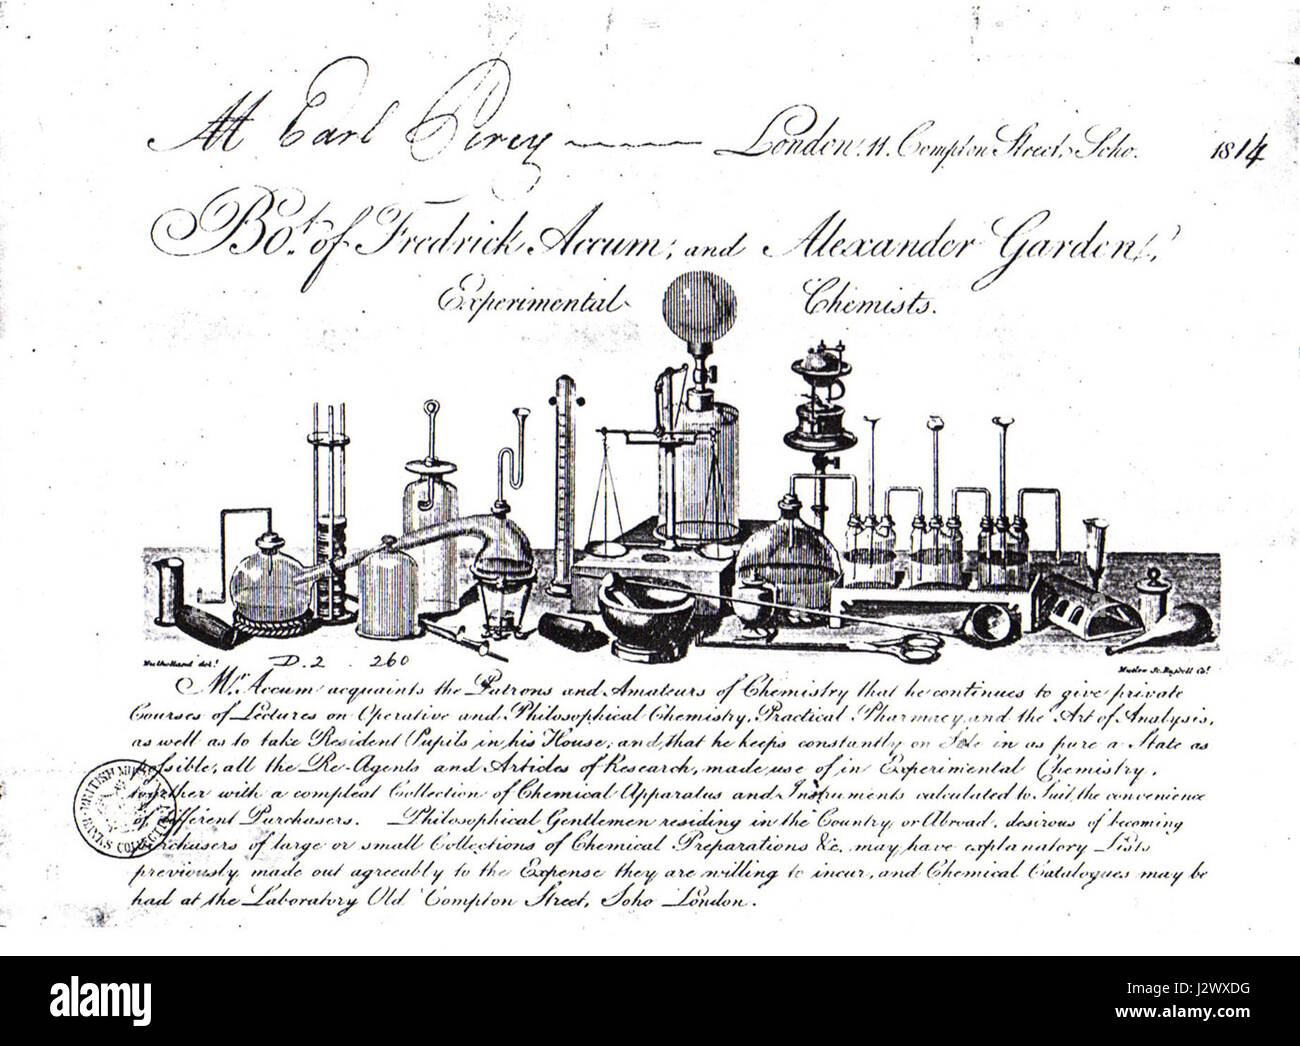 Earl Percy London. 11. Compton Street, Soho. 1814
Bot. of Fredrick Accum; and Alexander Garden,
Experimental Chemists.
Mulholland del! D.2. 260
Mr. Accum acquaints the Patrons and Amateurs of Chemistry that he continues to give private
Courses of Lectures on Operative and Philosophical Chemistry, Practical Pharmacy, and the Art of Analysis,
as well as to take Resident Pupils in his House; and, that he keeps constantly on Sale in as pure a State as
possible, all the Re-Agents and Articles of Research, made use of in Experimental Chemistry,
together with a compleat Collection of Chemical Apparatus and Instruments calculated to Suit, the convenience
of different Purchasers. Philosophical Gentlemen residing in the Country, or Abroad, desirous of becoming
Purchasers of large or small Collections of Chemical Preparations &c. may have explanatory Lists
previously made out agreeably to the Expense they are willing to incur, and Chemical Catalogues may be
had at the Laboratory Old Compton Street, Soho London.
BRITISH MUSEUM
BANKS COLLECTION
a
alamy stock photo
J2WXDG
www.alamy.com